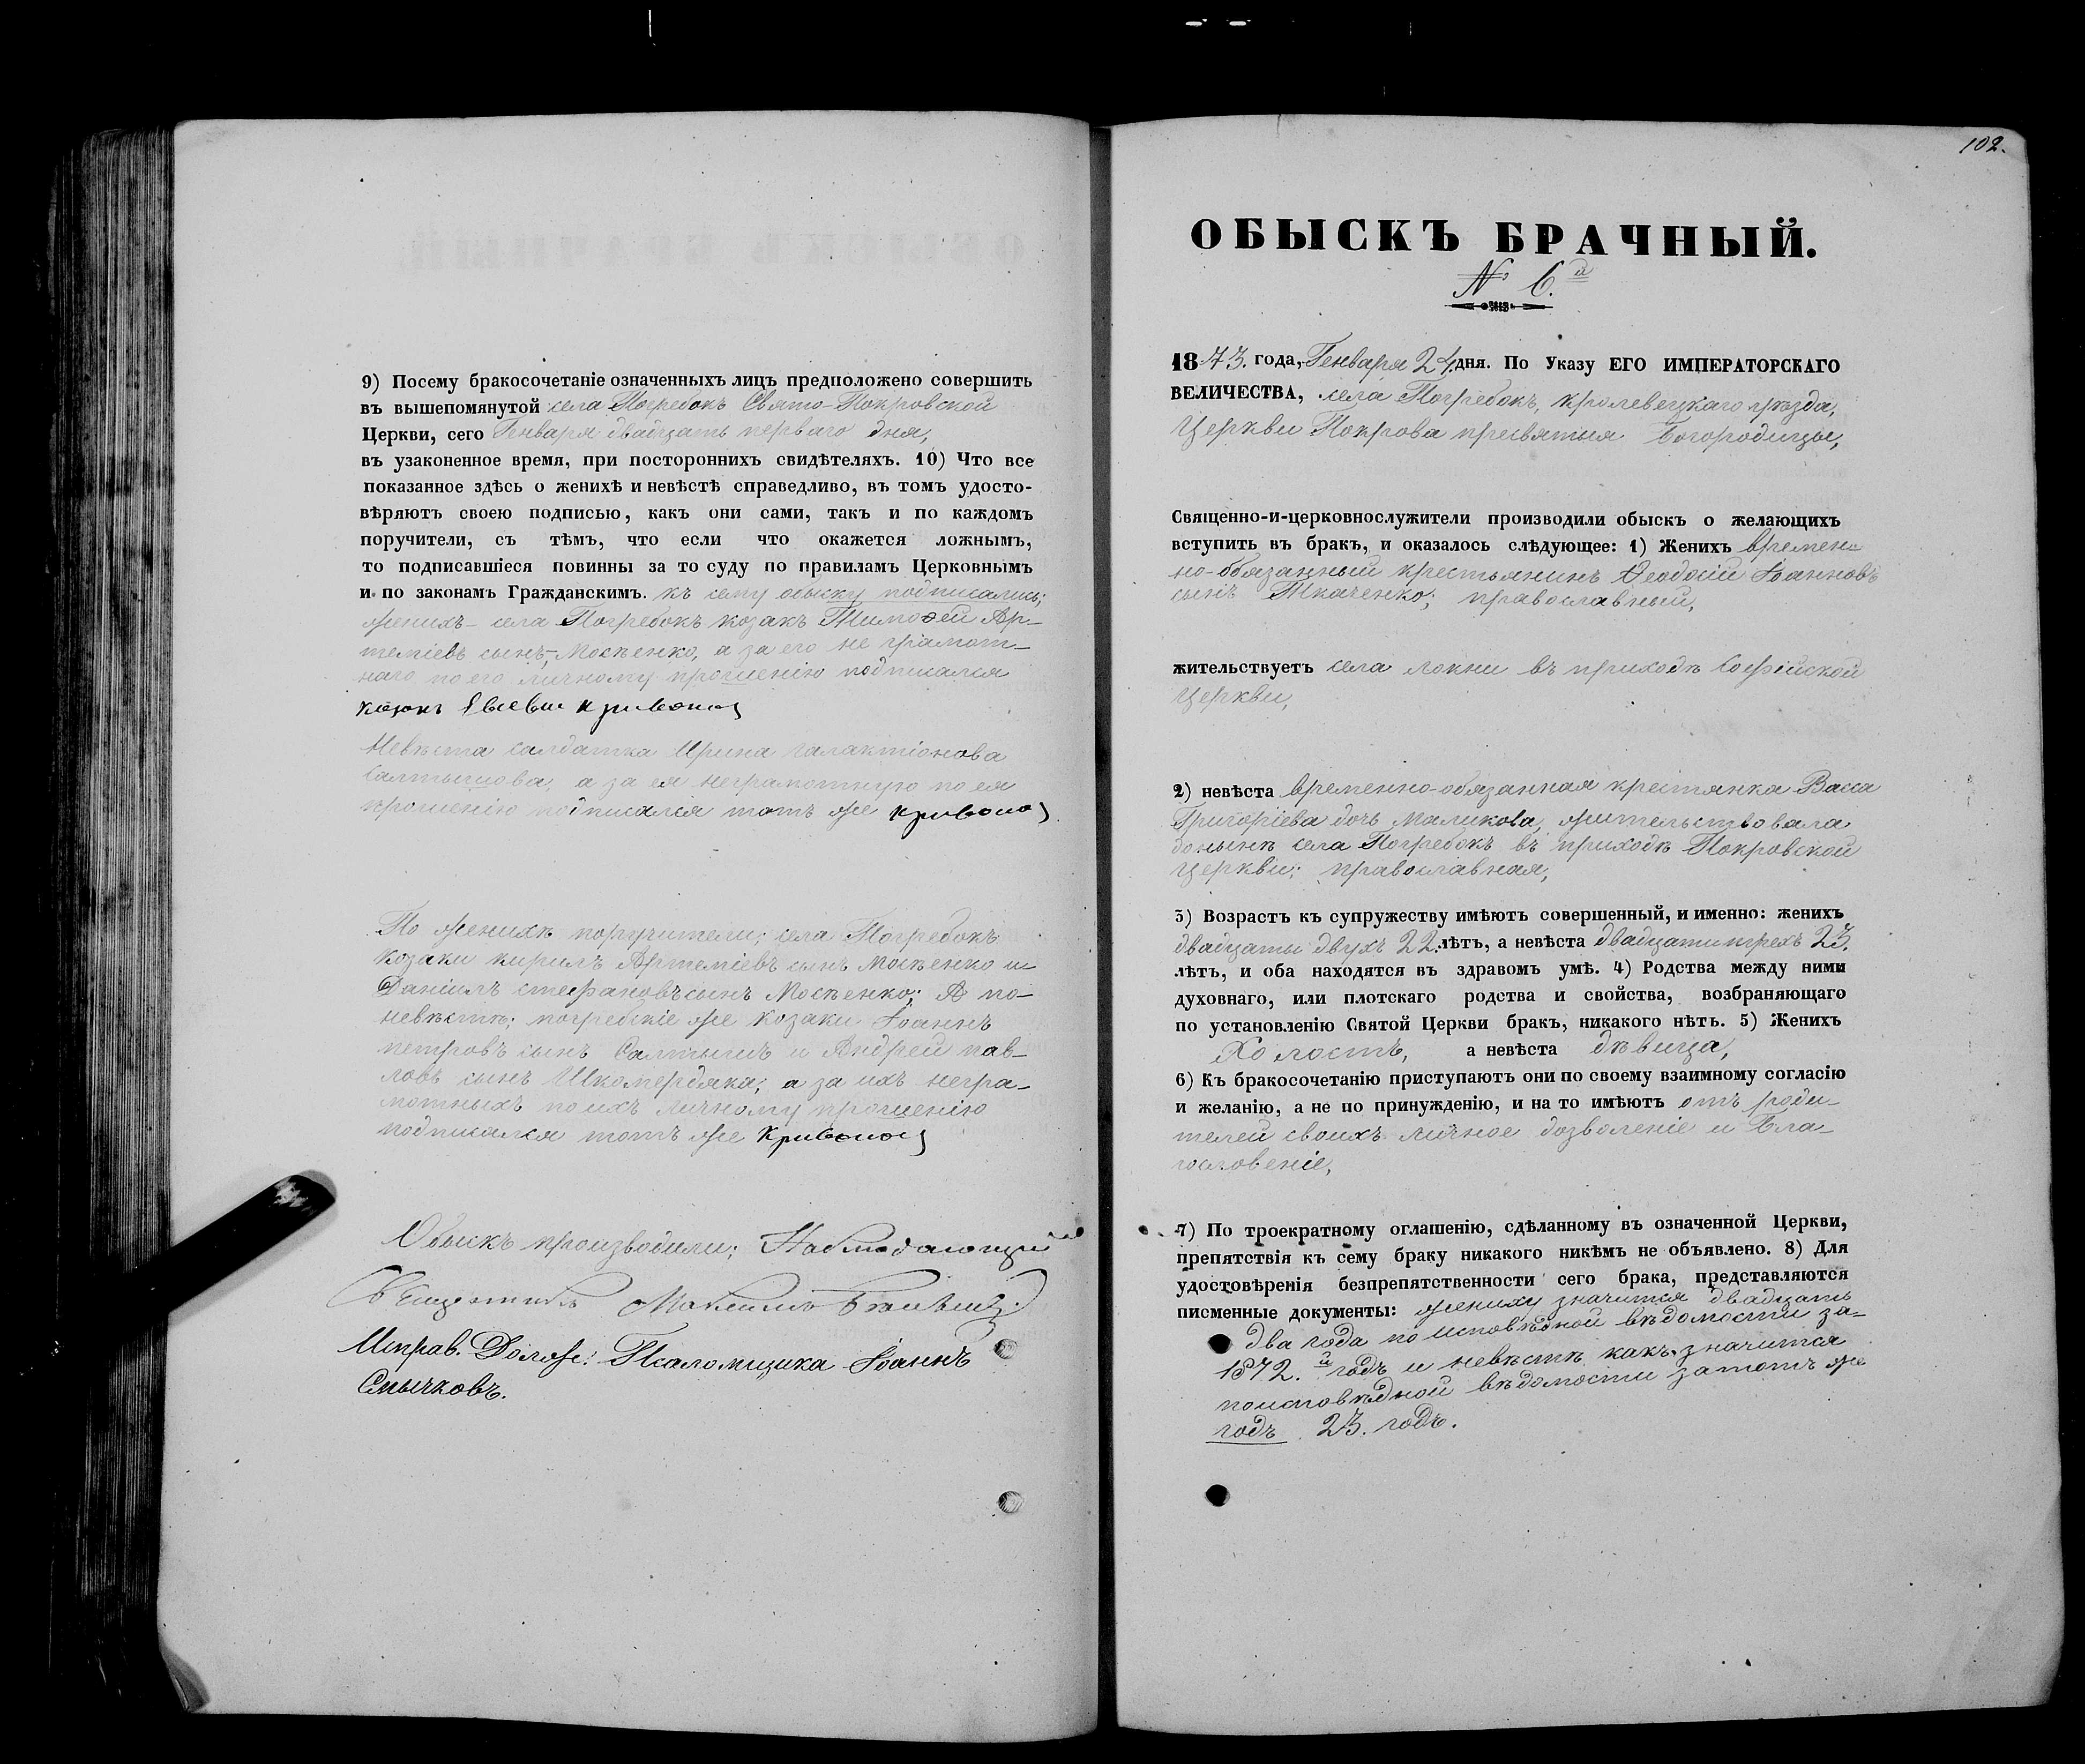 9) Посему бракосочетаніе означенныхъ лицъ предположено совершить
въ вышепомянутой села Погребокъ Свято-Покровской
Церкви, сего Генваря двадцать перваго дня,
въ узаконенное время, при постороннихъ свидѣтеляхъ. 10) Что все
показанное здѣсь о женихѣ и невѣстѣ справедливо, въ томъ удосто-
вѣряютъ своею подписью, какъ они сами, такъ и по каждомъ
поручители, съ тѣмъ, что если что окажется ложнымъ,
то подписавшіеся повинны за то суду по правиламъ Церковнымъ
и по законамъ Гражданскимъ. къ сему обыску подписались;
женихъ - села Погребокъ козакъ Тимоѳей Ар-
теміевъ сынъ Москенко, а за его не грамот-
наго по его личному прошенію подписался
козакъ Кривонос
Невѣста салдатка Ирина Галактіонова
Салтышова, а за ея неграмотную по ея
прошенію подписался тотъ же Кривонос
По женихѣ поручители; села Погребокъ
козаки Кирилъ Артеміевъ сынъ Москенко и
Даніилъ Стефановъ сынъ Москенко; А по
невѣстѣ; погребскіе же козаки Іоаннъ
Петровъ сынъ Салтышъ и Андрей Пав-
ловъ сынъ Шкомердяка; а за ихъ негра-
мотныхъ по ихъ личному прошенію
подписался тотъ же Кривонос
Обыскъ производили; Наблюдающій
Священникъ
Исправ. Долж: Псаломщика Іоаннъ
Смычковъ.
102.
ОБЫСКЪ БРАЧНЫЙ.
№ 6.й
1873. года, Генваря 24. дня. По Указу ЕГО ИМПЕРАТОРСКАГО
ВЕЛИЧЕСТВА, села Погребокъ, кролевецкаго уѣзда,
Церкви Покрова пресвятыя Богородицы,
Священно-и-церковнослужители производили обыскъ о желающихъ
вступить въ бракъ, и оказалось слѣдующее: 1) Женихъ времен-
но-обязанный крестьянинъ Ѳеодосій Іоанновъ
сынъ Ткаченко; православный,
жительствуетъ села Локни въ приходѣ Софійской
Церкви,
2) невѣста временно-обязанная крестянка Васса
Григоріева дочь Маликова, жительствовала
донынѣ села Погребокъ въ приходѣ Покровской
Церкви; православная,
3) Возрастъ къ супружеству имѣютъ совершенный, и именно: женихъ
двадцаты двухъ 22. лѣтъ, а невѣста двадцати трехъ 23.
лѣтъ, и оба находятся въ здравомъ умѣ. 4) Родства между ними
духовнаго, или плотскаго родства и свойства, возбраняющаго
по установленію Святой Церкви бракъ, никакого нѣтъ. 5) Женихъ
Холостъ, а невѣста дѣвица,
6) Къ бракосочетанію приступаютъ они по своему взаимному согласію
и желанію, а не по принужденію, и на то имѣютъ отъ роди-
телей своихъ личное дозволеніе и Бла-
гословеніе,
7) По троекратному оглашенію, сдѣланному въ означенной Церкви,
препятствія къ сему браку никакого никѣмъ не объявлено. 8) Для
удостовѣренія безпрепятственности сего брака, представляются
писменные документы: жениху значится двадцать
два года по исповѣдной вѣдомости за-
1872.й годъ и невѣстѣ какъ значится
по исповѣдной вѣдомости за тотъ же
годъ 23. годъ.